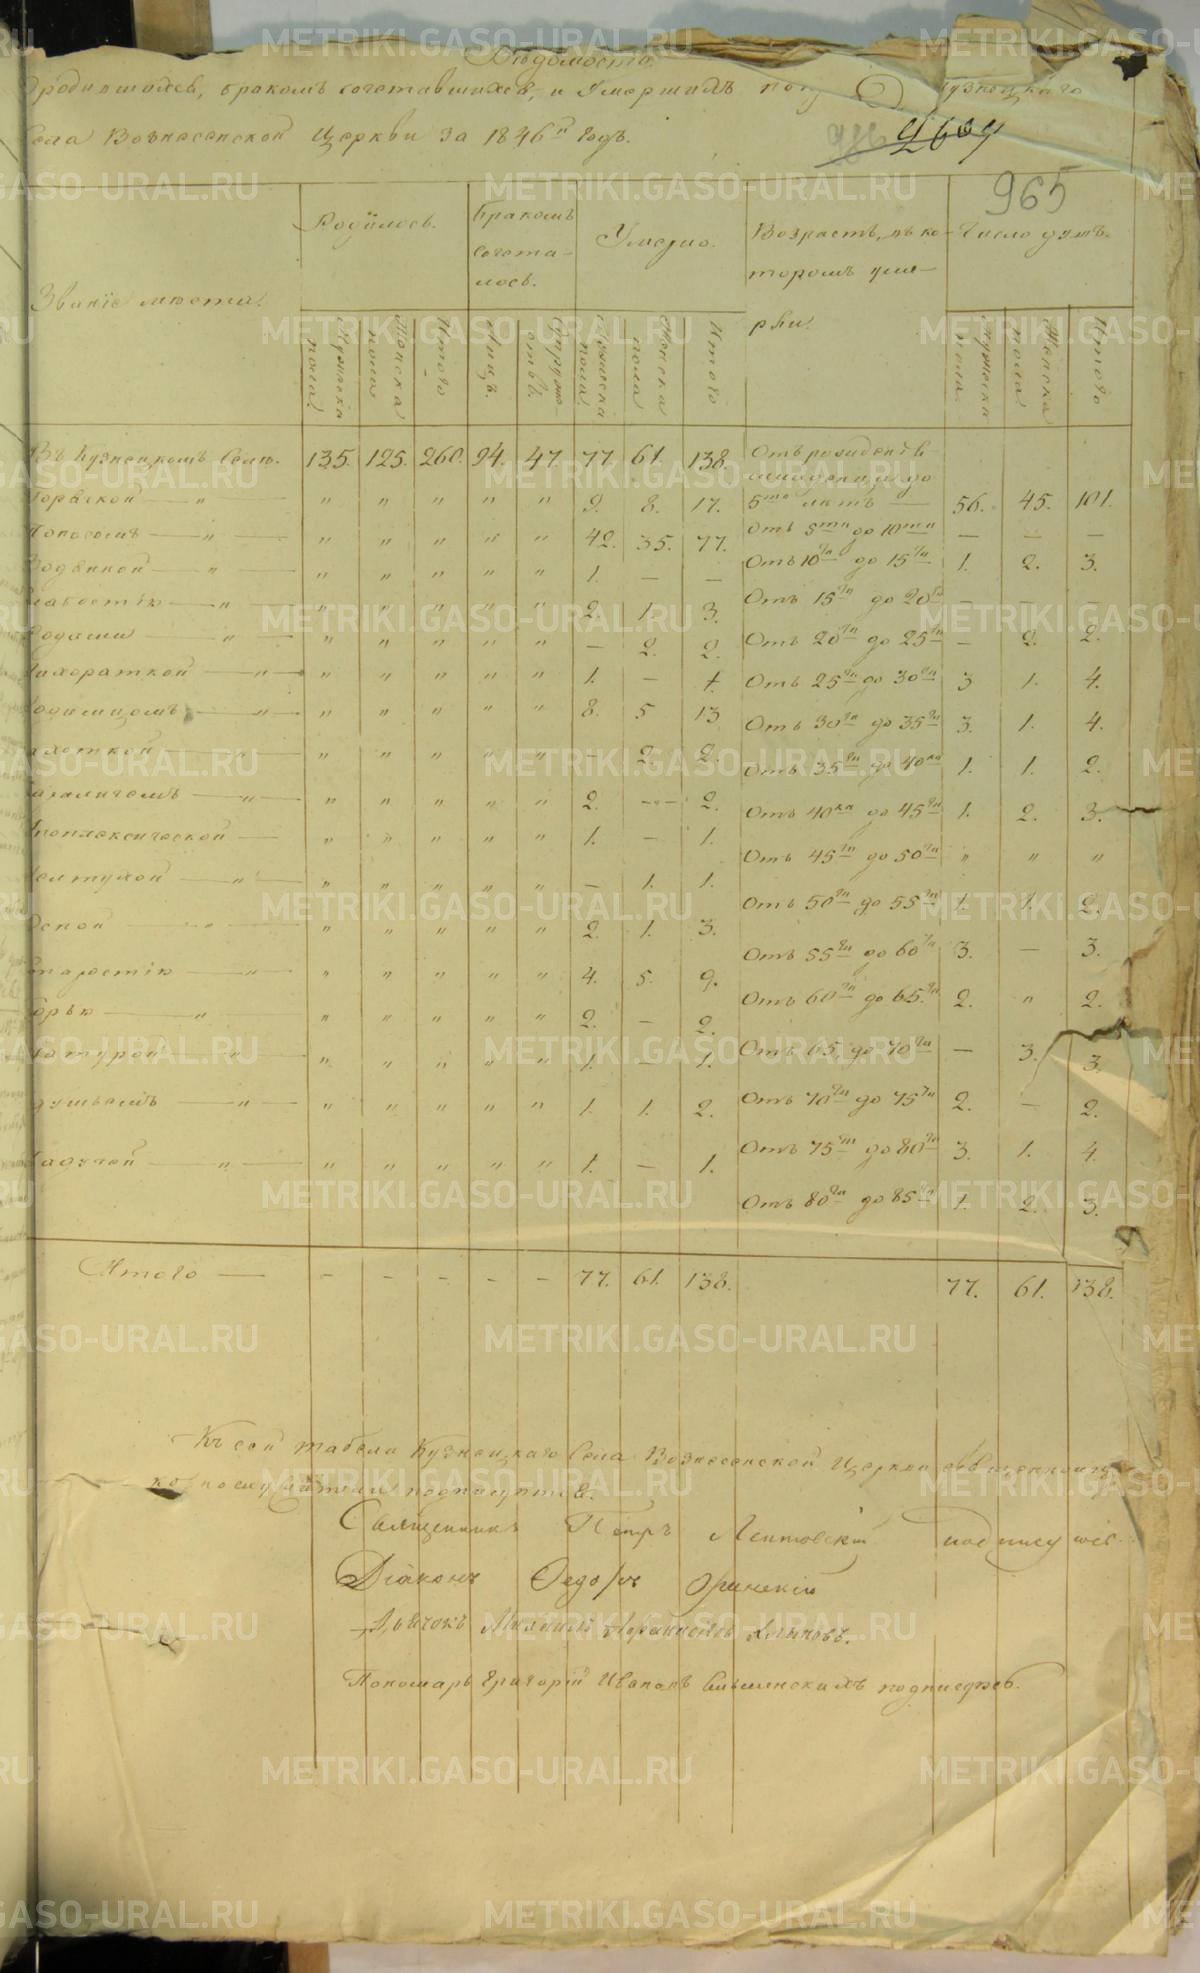 Ведомость
родившихся, бракомъ сочетавшихся, и Умершихъ Кузнецкаго
Села Вознесенской Церкви за 1846й годъ.
2609
965
Званіе места.
Родилось.
Бракомъ сочета-лось.
Умерло.
Возрастъ, въ ко-тором уме-рли.
Число душъ.
Мужеска пола.
Женска пола
Итого
Лицъ.
Супруже-ствъ.
Мужеска пола
Женска пола
Итого
Мужеска пола
Женска пола
Итого
Въ Кузнецкомъ Селе. 135. 125. 260. 94. 47. 77. 61. 138. Отъ рожденія
младенца до
Горячкой — „ — „ „ „ „ „ 9. 8. 17. 5ти летъ — 56. 45. 101.
Поносомъ — „ — „ „ „ „ „ 42. 35. 77. Отъ 5ти до 10ти — — —
Водянкой — „ — „ „ „ „ „ 1. — — Отъ 10ти до 15ти 1. 2. 3.
Слабостію — „ — „ „ „ „ „ 2. 1. 3. Отъ 15ти до 20ти — — —
Родами — „ — „ „ „ „ „ — 2. 2. Отъ 20ти до 25ти — 2. 2.
Лихораткой — „ — „ „ „ „ „ 1. — 1. Отъ 25ти до 30ти 3 1. 4.
Родимцомъ — „ — „ „ „ „ „ 8. 5 13 Отъ 30ти до 35ти 3. 1. 4.
Чахоткой — „ — „ „ „ „ „ — 2. 2. Отъ 35ти до 40ка 1. 1. 2.
Параличемъ — „ — „ „ „ „ „ 2. — 2. Отъ 40ка до 45ти 1. 2. 3.
Апоплексической — „ „ „ „ „ 1. — 1. Отъ 45ти до 50ти „ „ „
Желтухой — „ — „ „ „ „ „ — 1. 1. Отъ 50ти до 55ти 1. 1. 2.
Оспой — „ — „ „ „ „ „ 2. 1. 3. Отъ 55ти до 60ти 3. — 3.
Старостію — „ — „ „ „ „ „ 4. 5. 9. Отъ 60ти до 65ти 2. „ 2.
Корью — „ „ „ „ „ „ 2. — 2. Отъ 65 до 70ти — 3. 3.
Натурой — „ — „ „ „ „ „ 1. — 1. Отъ 70ти до 75ти 2. — 2.
Удушьемъ — „ — „ „ „ „ „ 1. 1. 2. Отъ 75ти до 80ти 3. 1. 4.
Падучей — „ — „ „ „ „ „ 1. — 1. Отъ 80ти до 85ти 1. 2. 3.
Итого — - - - - - 77. 61. 138. 77. 61. 138.
Къ сей табели Кузнецкаго Села Вознесенской Церкви священно и цер-
ковнослужители подписуются.
Священникъ Петръ Лептовскій подписуюсь.
Діаконъ Федоръ
Дьячокъ Михаилъ Хлыновъ.
Пономарь Григорій Ивановъ подписуюсь.
METRIKI.GASO-URAL.RU